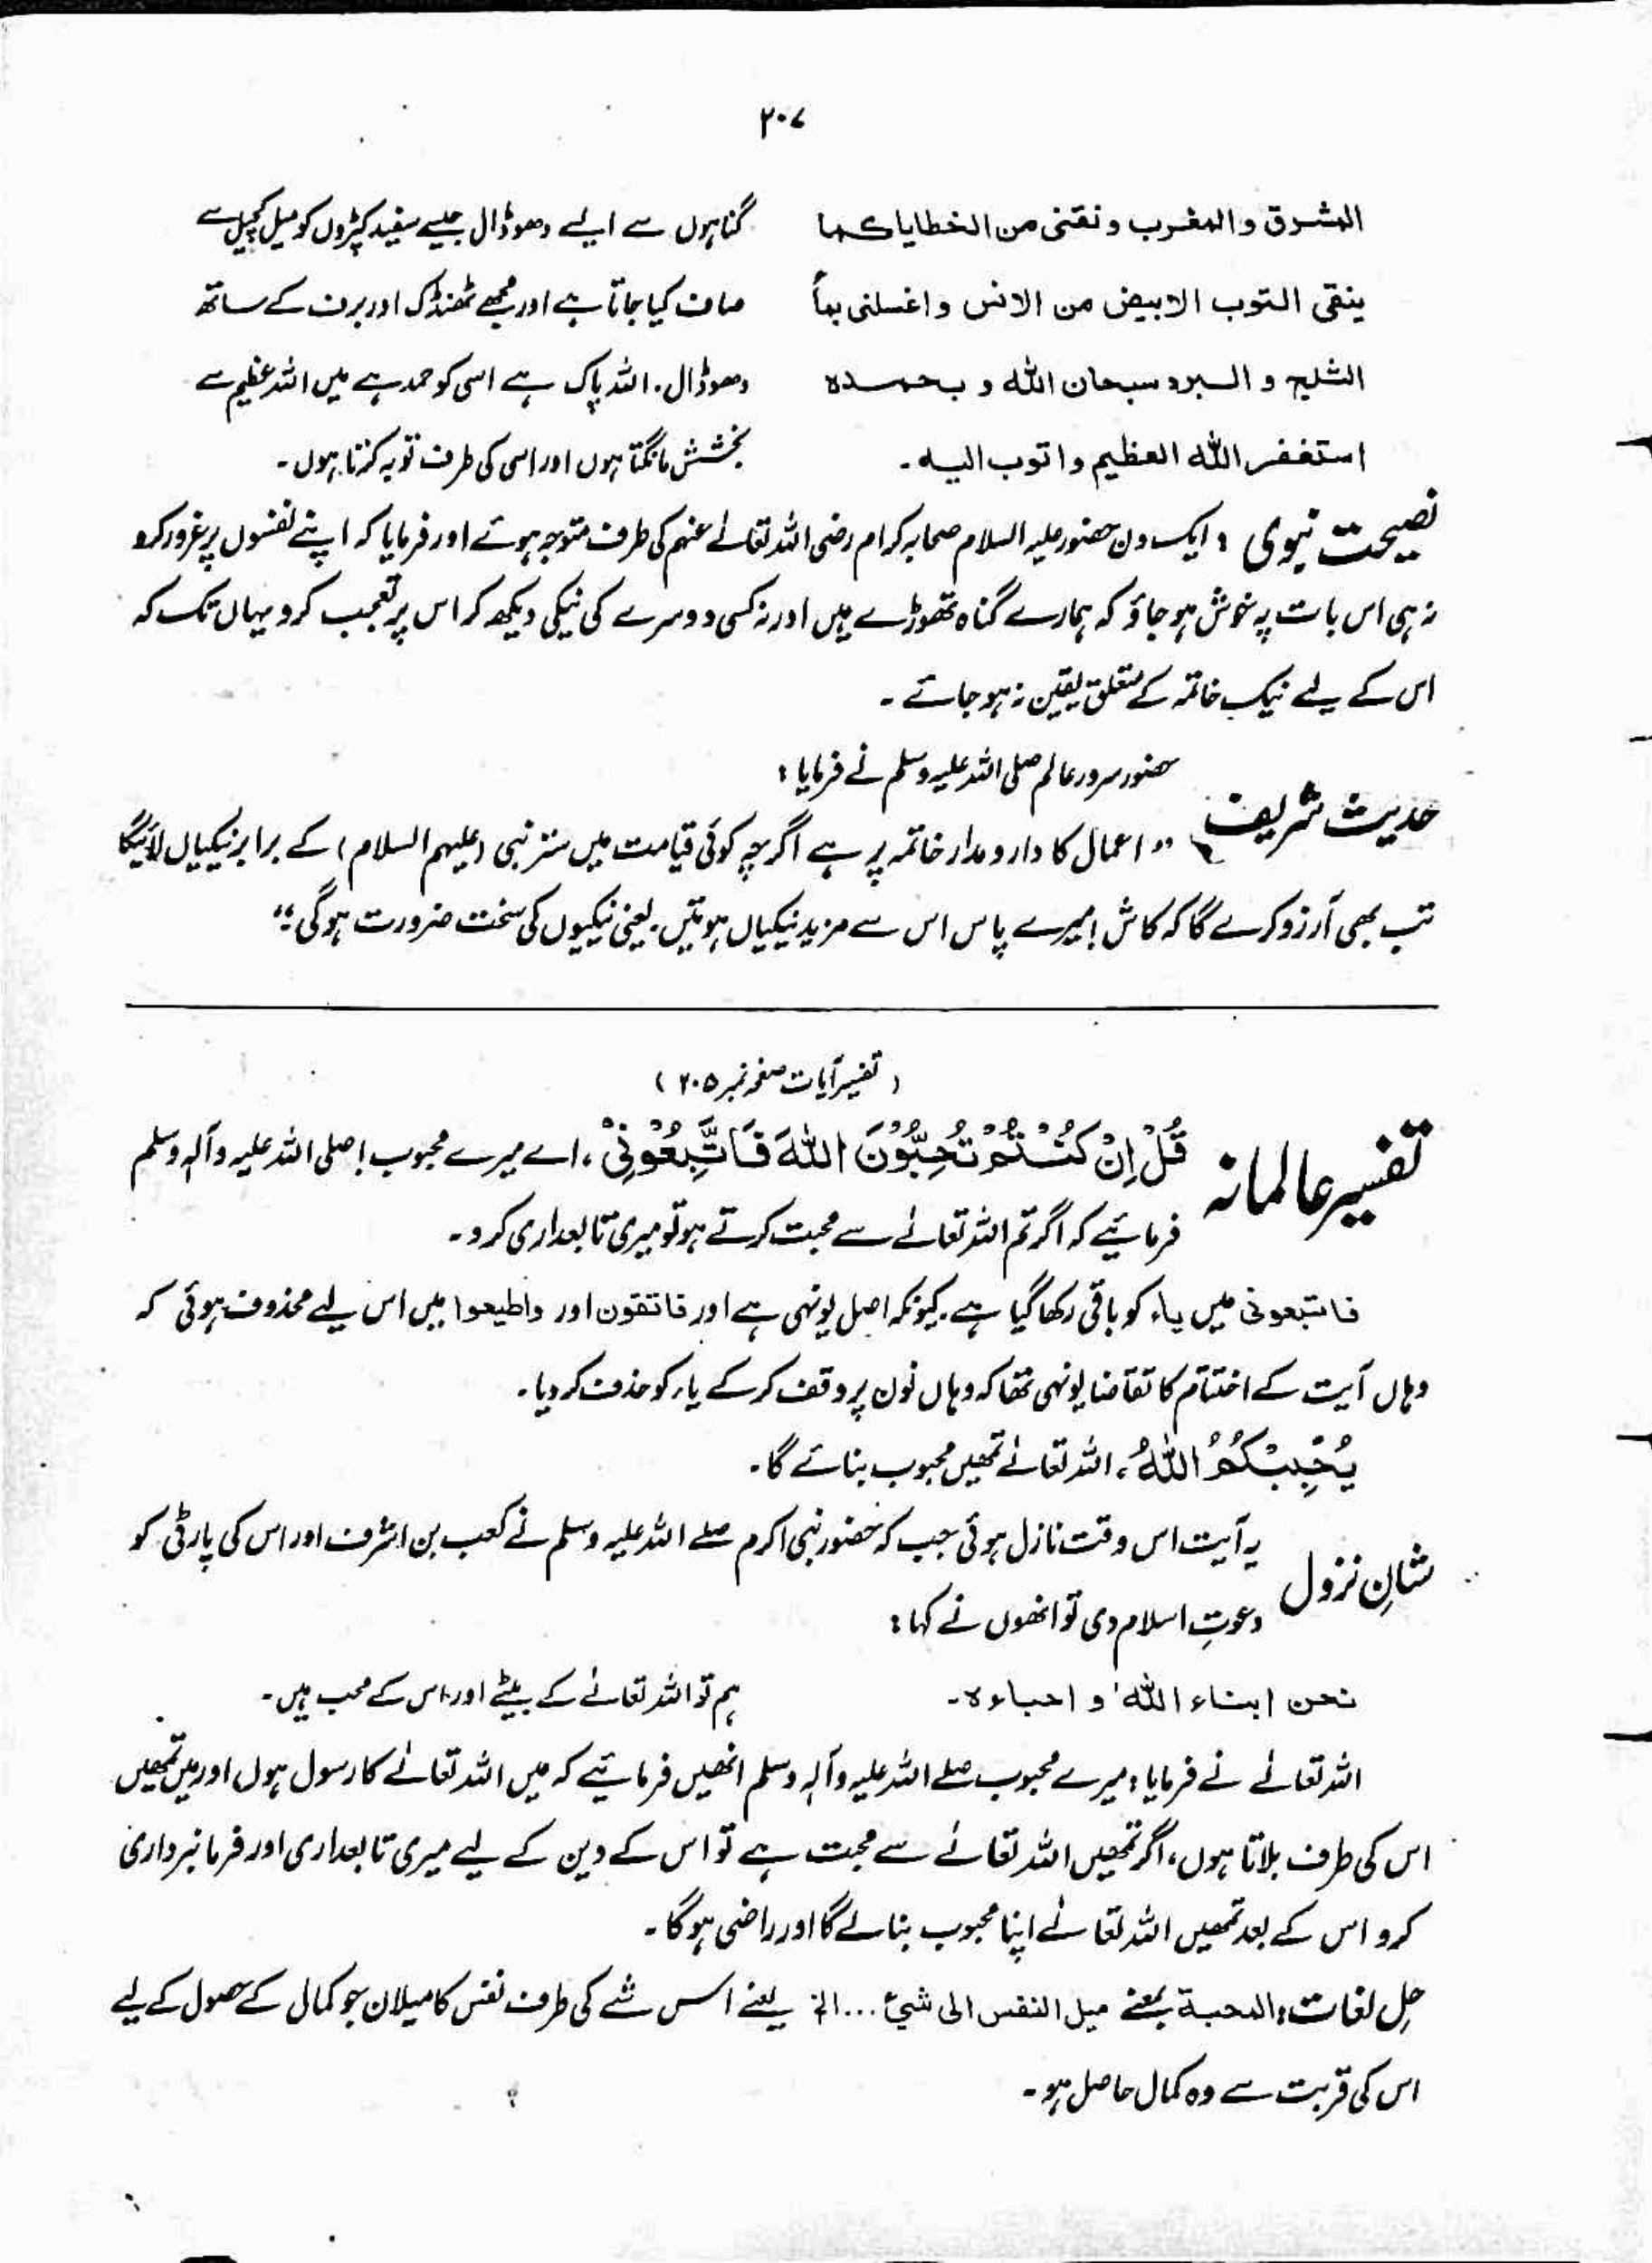 ۲۰۷
المشرق والمغرب ونقنی من الخطایا کما
گناہوں سے ایسے دھو ڈال جیسے سفید کپڑوں کو میل کچیل سے
ینقی الثوب الابیض من الانس واغسلنی بمأ
صاف کیا جاتا ہے اور مجھے ٹھنڈک اور برف کے ساتھ
الثلیج و البرد سبحان اللہ و بحمدہ
دھو ڈال۔ اللہ پاک ہے اسی کو حمد ہے میں اللہ عظیم سے
استغفر اللہ العظیم و اتوب الیہ۔
بخشش مانگتا ہوں اور اسی کی طرف توبہ کرتا ہوں۔
نصیحت نبوی : ایک دن حضور علیہ السلام صحابہ کرام رضی اللہ تعالےٰ عنہم کی طرف متوجہ ہوئے اور فرمایا کہ اپنے نفسوں پر غرور کرو
نہ ہی اس بات پہ خوش ہو جاؤ کہ ہمارے گناہ تھوڑے ہیں اور نہ کسی دوسرے کی نیکی دیکھ کر اس پر تعجب کرو یہاں تک کہ
اس کے لیے نیک خاتمہ کے متعلق یقین نہ ہو جائے۔
حدیث شریف حضور سرور عالم صلی اللہ علیہ وسلم نے فرمایا :
" اعمال کا دار و مدار خاتمہ پر ہے اگرچہ کوئی قیامت میں ستر نبی (علیہم السلام) کے برابر نیکیاں لائیگا
تب بھی آرزو کرے گا کہ کاش! میرے پاس اس سے مزید نیکیاں ہوتیں۔ یعنی نیکیوں کی سخت ضرورت ہوگی۔"
( تفسیر آیات صفحہ نمبر ۲۰۵ )
تفسیر عالمانہ قُلْ اِنْ کُنْتُمْ تُحِبُّوْنَ اللّٰہَ فَاتَّبِعُوْنِیْ ، اے میرے محبوب ! صلی اللہ علیہ وآلہ وسلم
فرمائیے کہ اگر تم اللہ تعالےٰ سے محبت کرتے ہو تو میری تابعداری کرو۔
فاتبعونی میں یاء کو باقی رکھا گیا ہے۔ کیونکہ اصل یونہی ہے اور فاتقون اور واطیعوا میں اس لیے محذوف ہوئی کہ
وہاں آیت کے اختتام کا تقاضا یونہی تھا کہ وہاں نون پر وقف کر کے یاء کو حذف کر دیا۔
یُحْبِبْکُمُ اللّٰہُ ، اللہ تعالےٰ تمھیں محبوب بنائے گا۔
شانِ نزول یہ آیت اس وقت نازل ہوئی جب کہ حضور نبی اکرم صلے اللہ علیہ وسلم نے کعب بن اشرف اور اس کی پارٹی کو
دعوتِ اسلام دی تو انھوں نے کہا :
نحن ابناء اللہ و احباءہ۔
ہم تو اللہ تعالےٰ کے بیٹے اور اس کے محب ہیں۔
اللہ تعالےٰ نے فرمایا : میرے محبوب صلے اللہ علیہ وآلہ وسلم انھیں فرمائیے کہ میں اللہ تعالےٰ کا رسول ہوں اور میں تمھیں
اس کی طرف بلاتا ہوں، اگر تمھیں اللہ تعالےٰ سے محبت ہے تو اس کے دین کے لیے میری تابعداری اور فرمانبرداری
کرو اس کے بعد تمھیں اللہ تعالےٰ اپنا محبوب بنا لے گا اور راضی ہوگا۔
حل لغات : المحبة بمعنے میل النفس الی شیٔ ... الخ یعنے اس شے کی طرف نفس کا میلان جو کمال کے حصول کے لیے
اس کی قربت سے وہ کمال حاصل ہو۔